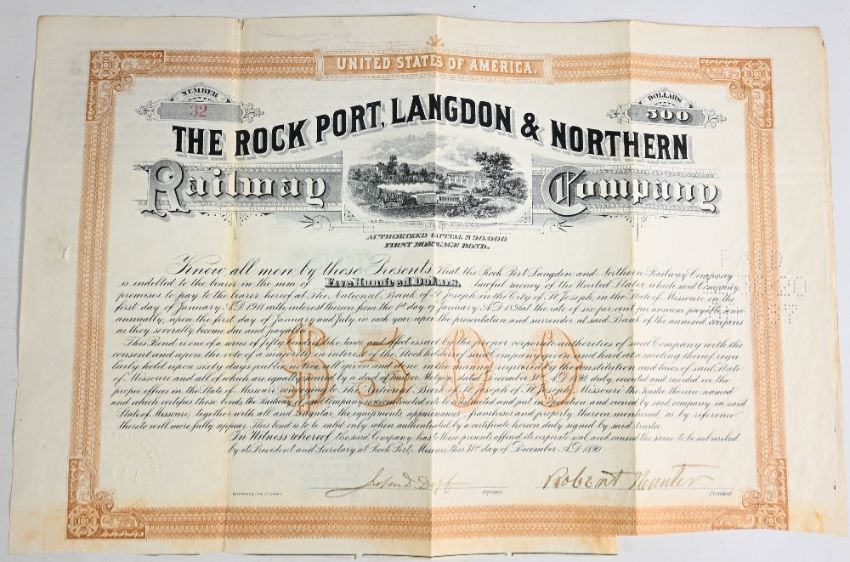 UNITED STATES OF AMERICA.
NUMBER
32
DOLLARS
500
THE ROCK PORT, LANGDON & NORTHERN
Railway Company
AUTHORIZED CAPITAL $90,000
FIRST MORTGAGE BOND.
Know all men by these Presents, That the Rock Port, Langdon and Northern Railway Company
is indebted to the bearer in the sum of Five Hundred Dollars, lawful money of the United States which said Company
promises to pay to the bearer hereof at The National Bank of St Joseph in the City of St Joseph, in the State of Missouri on the
first day of January A.D. 1911 with interest thereon from the 1st day of January A.D. at the rate of six per cent per annum payable semi-
annually, upon the first day of January and July in each year upon the presentation and surrender at said Bank of the annexed coupons
as they severally become due and payable
$500
This Bond is one of a series of fifty of like tenor and date issued by the proper corporate authorities of said Company with the
consent and upon the vote of a majority in interest of the Stock holders of said Company given and had at a meeting thereof regu-
larly held upon sixty days public notice all given and done in the manner required by the constitution and laws of said State
of Missouri and all of which are equally secured by a deed of trust or Mortgage dated December 31st A.D. 1890 duly executed and recorded in the
proper offices in the State of Missouri conveying to The National Bank of St Joseph of St Joseph, Missouri, the trustee therein named
and which certifies these bonds, the Railroad of said Company constructed or to be constructed and put in operation and owned by said company in said
State of Missouri, together with all and singular, the equipments, appurtenances, franchises and property therein mentioned as by reference
thereto will more fully appear. This bond is to be valid only when authenticated by a certificate hereon duly signed by said trustee
In Witness whereof The said Company has to these presents affixed its corporate seal and caused the same to be subscribed
by its President and Secretary at Rock Port, Missouri, this 31st day of December A.D. 1890
John D.
Robert Hunter
Secretary.
President